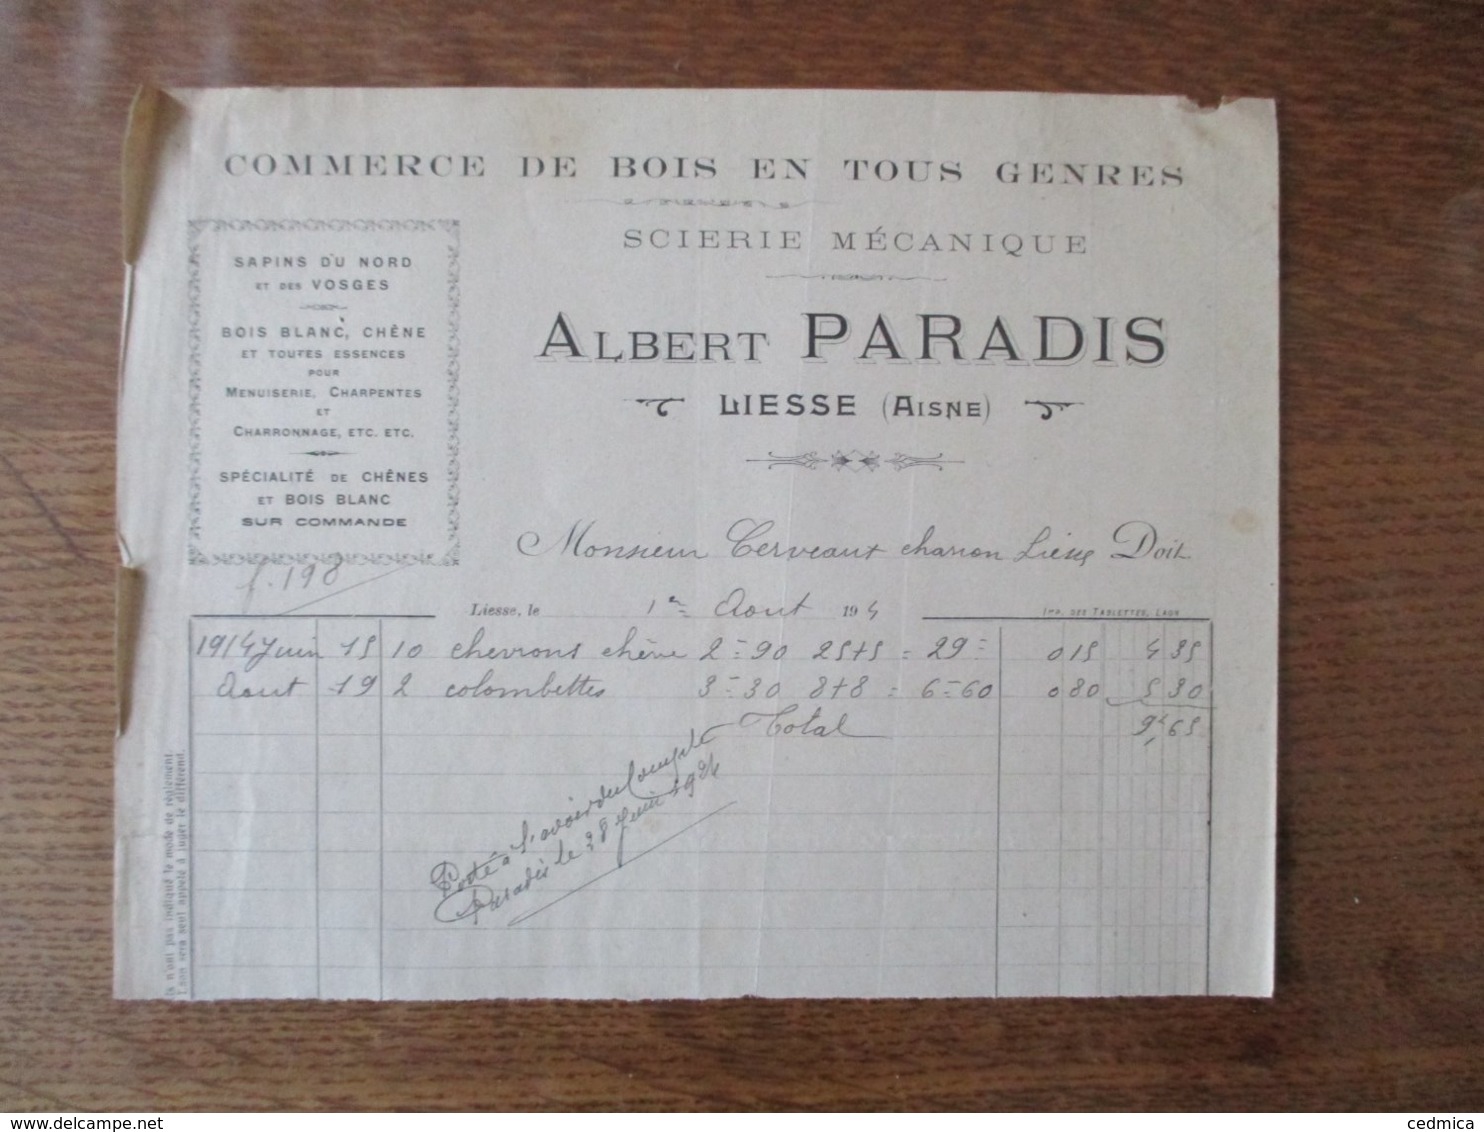 COMMERCE DE BOIS EN TOUS GENRES
SCIERIE MÉCANIQUE
ALBERT PARADIS
LIESSE (AISNE)
SAPINS DU NORD
ET DES VOSGES
BOIS BLANC, CHÊNE
ET TOUTES ESSENCES
POUR
MENUISERIE, CHARPENTES
ET
CHARRONNAGE, ETC. ETC.
SPÉCIALITÉ DE CHÊNES
ET BOIS BLANC
SUR COMMANDE
f. 198
Monsieur Cerveaux charron Liesse Doit
Liesse, le 1er Aout 1914
IMP. DES TABLETTES, LAON
1914 Juin 15 10 chevrons chêne 2=90 25+5 = 29= 0 15 4 35
Aout 19 2 colombettes 3=30 8+8 = 6=60 0 80 5 30
Total 9f 65
Porté à l'avoir du Compte
Paradis le 28 Juin 1924
n'ont pas indiqué le mode de règlement.
Laon sera seul appelé à juger le différend.
www.delcampe.net
cedmica